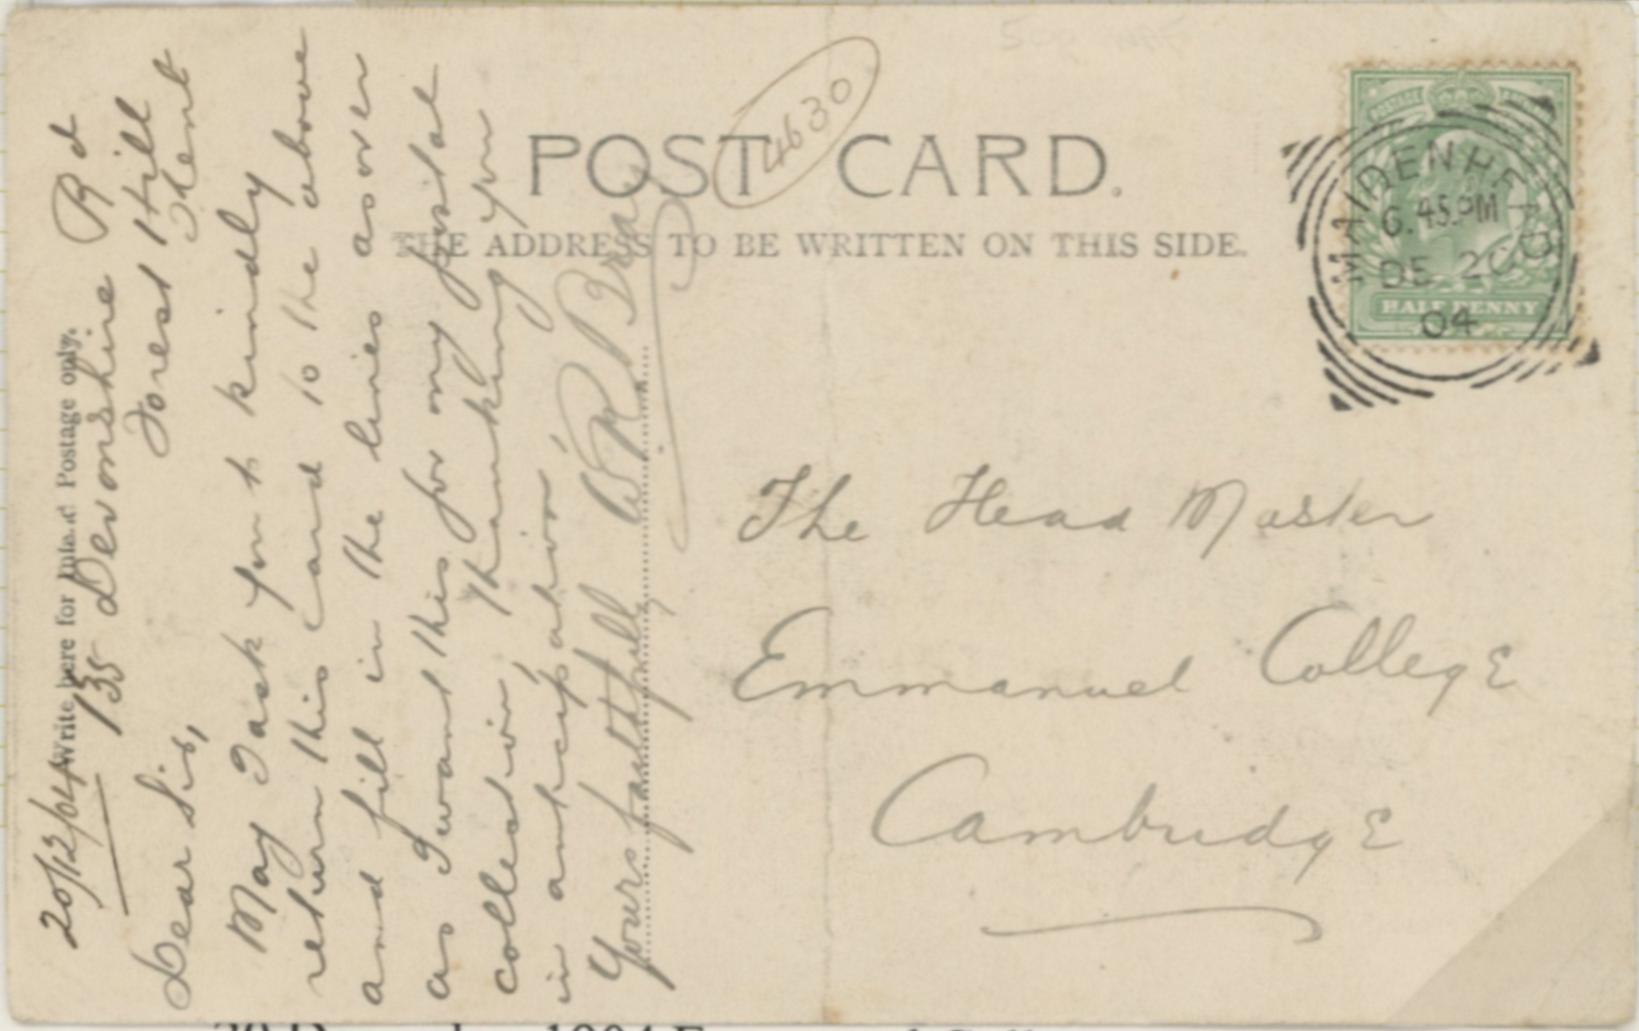 4630
POST CARD.
THE ADDRESS TO BE WRITTEN ON THIS SIDE.
MAIDENHEAD
6.45.PM
DE 20
04
HALF PENNY
Write here for Inland Postage only.
20/12/04
135 Devonshire Rd
Forest Hill
Kent
Dear Sir,
May I ask you to kindly
return this card to the above
and fill in the lines as over
as I want this for my postal
collection, Thanking you
in anticipation
Yours faithfully
The Head Master
Emmanuel College
Cambridge